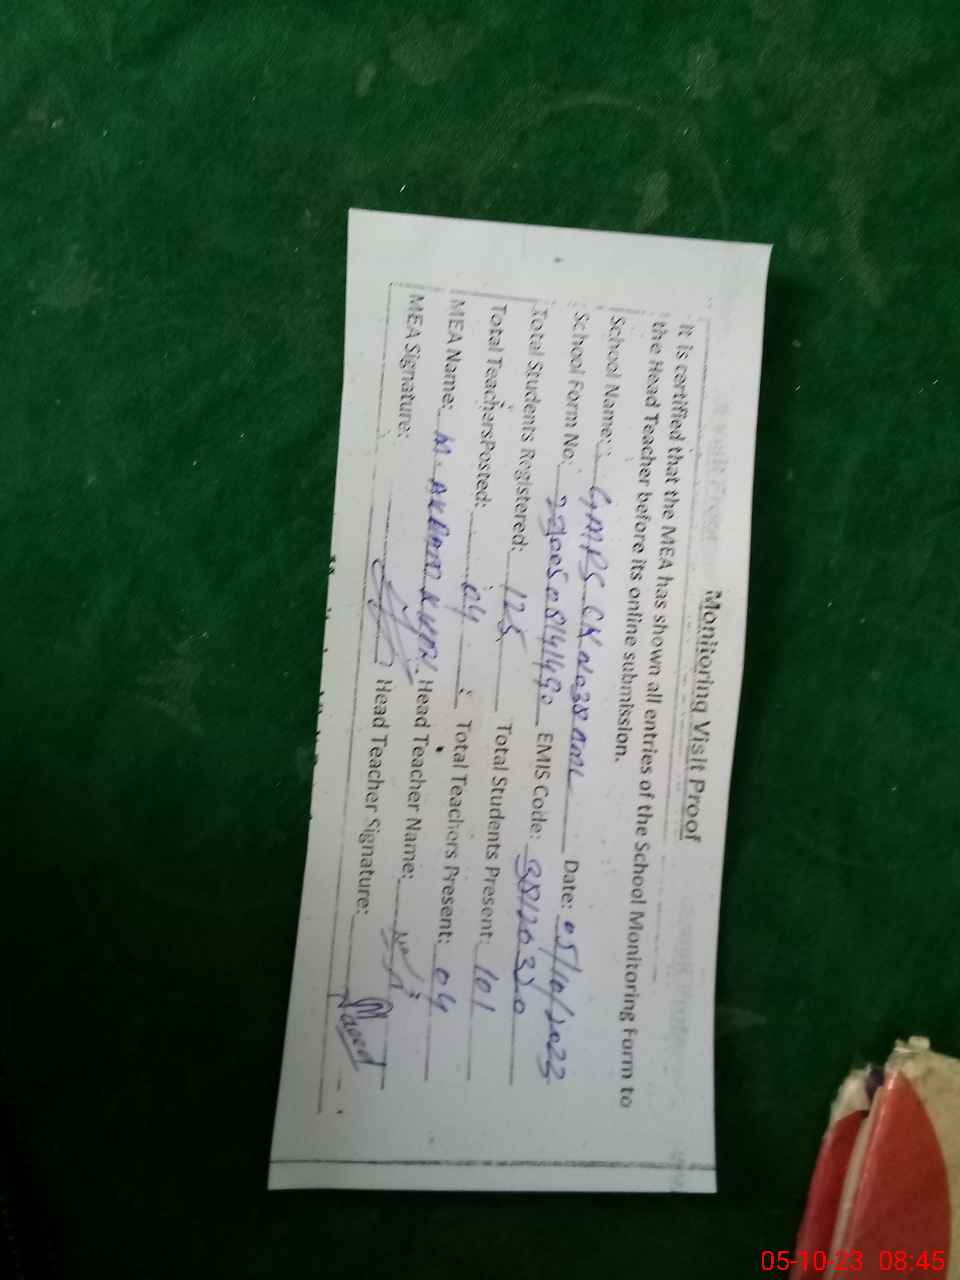 Monitoring Visit Proof
It is certified that the MEA has shown all entries of the School Monitoring Form to
the Head Teacher before its online submission.
School Name: GMPS CK No 38 Date: 05/10/2023
School Form No: EMIS Code: 38120320
Total Students Registered: 125 Total Students Present: 101
Total TeachersPosted: 04 Total Teachers Present: 04
MEA Name: M. AKRAM KHAN Head Teacher Name:
MEA Signature: Head Teacher Signature:
05-10-23 08:45